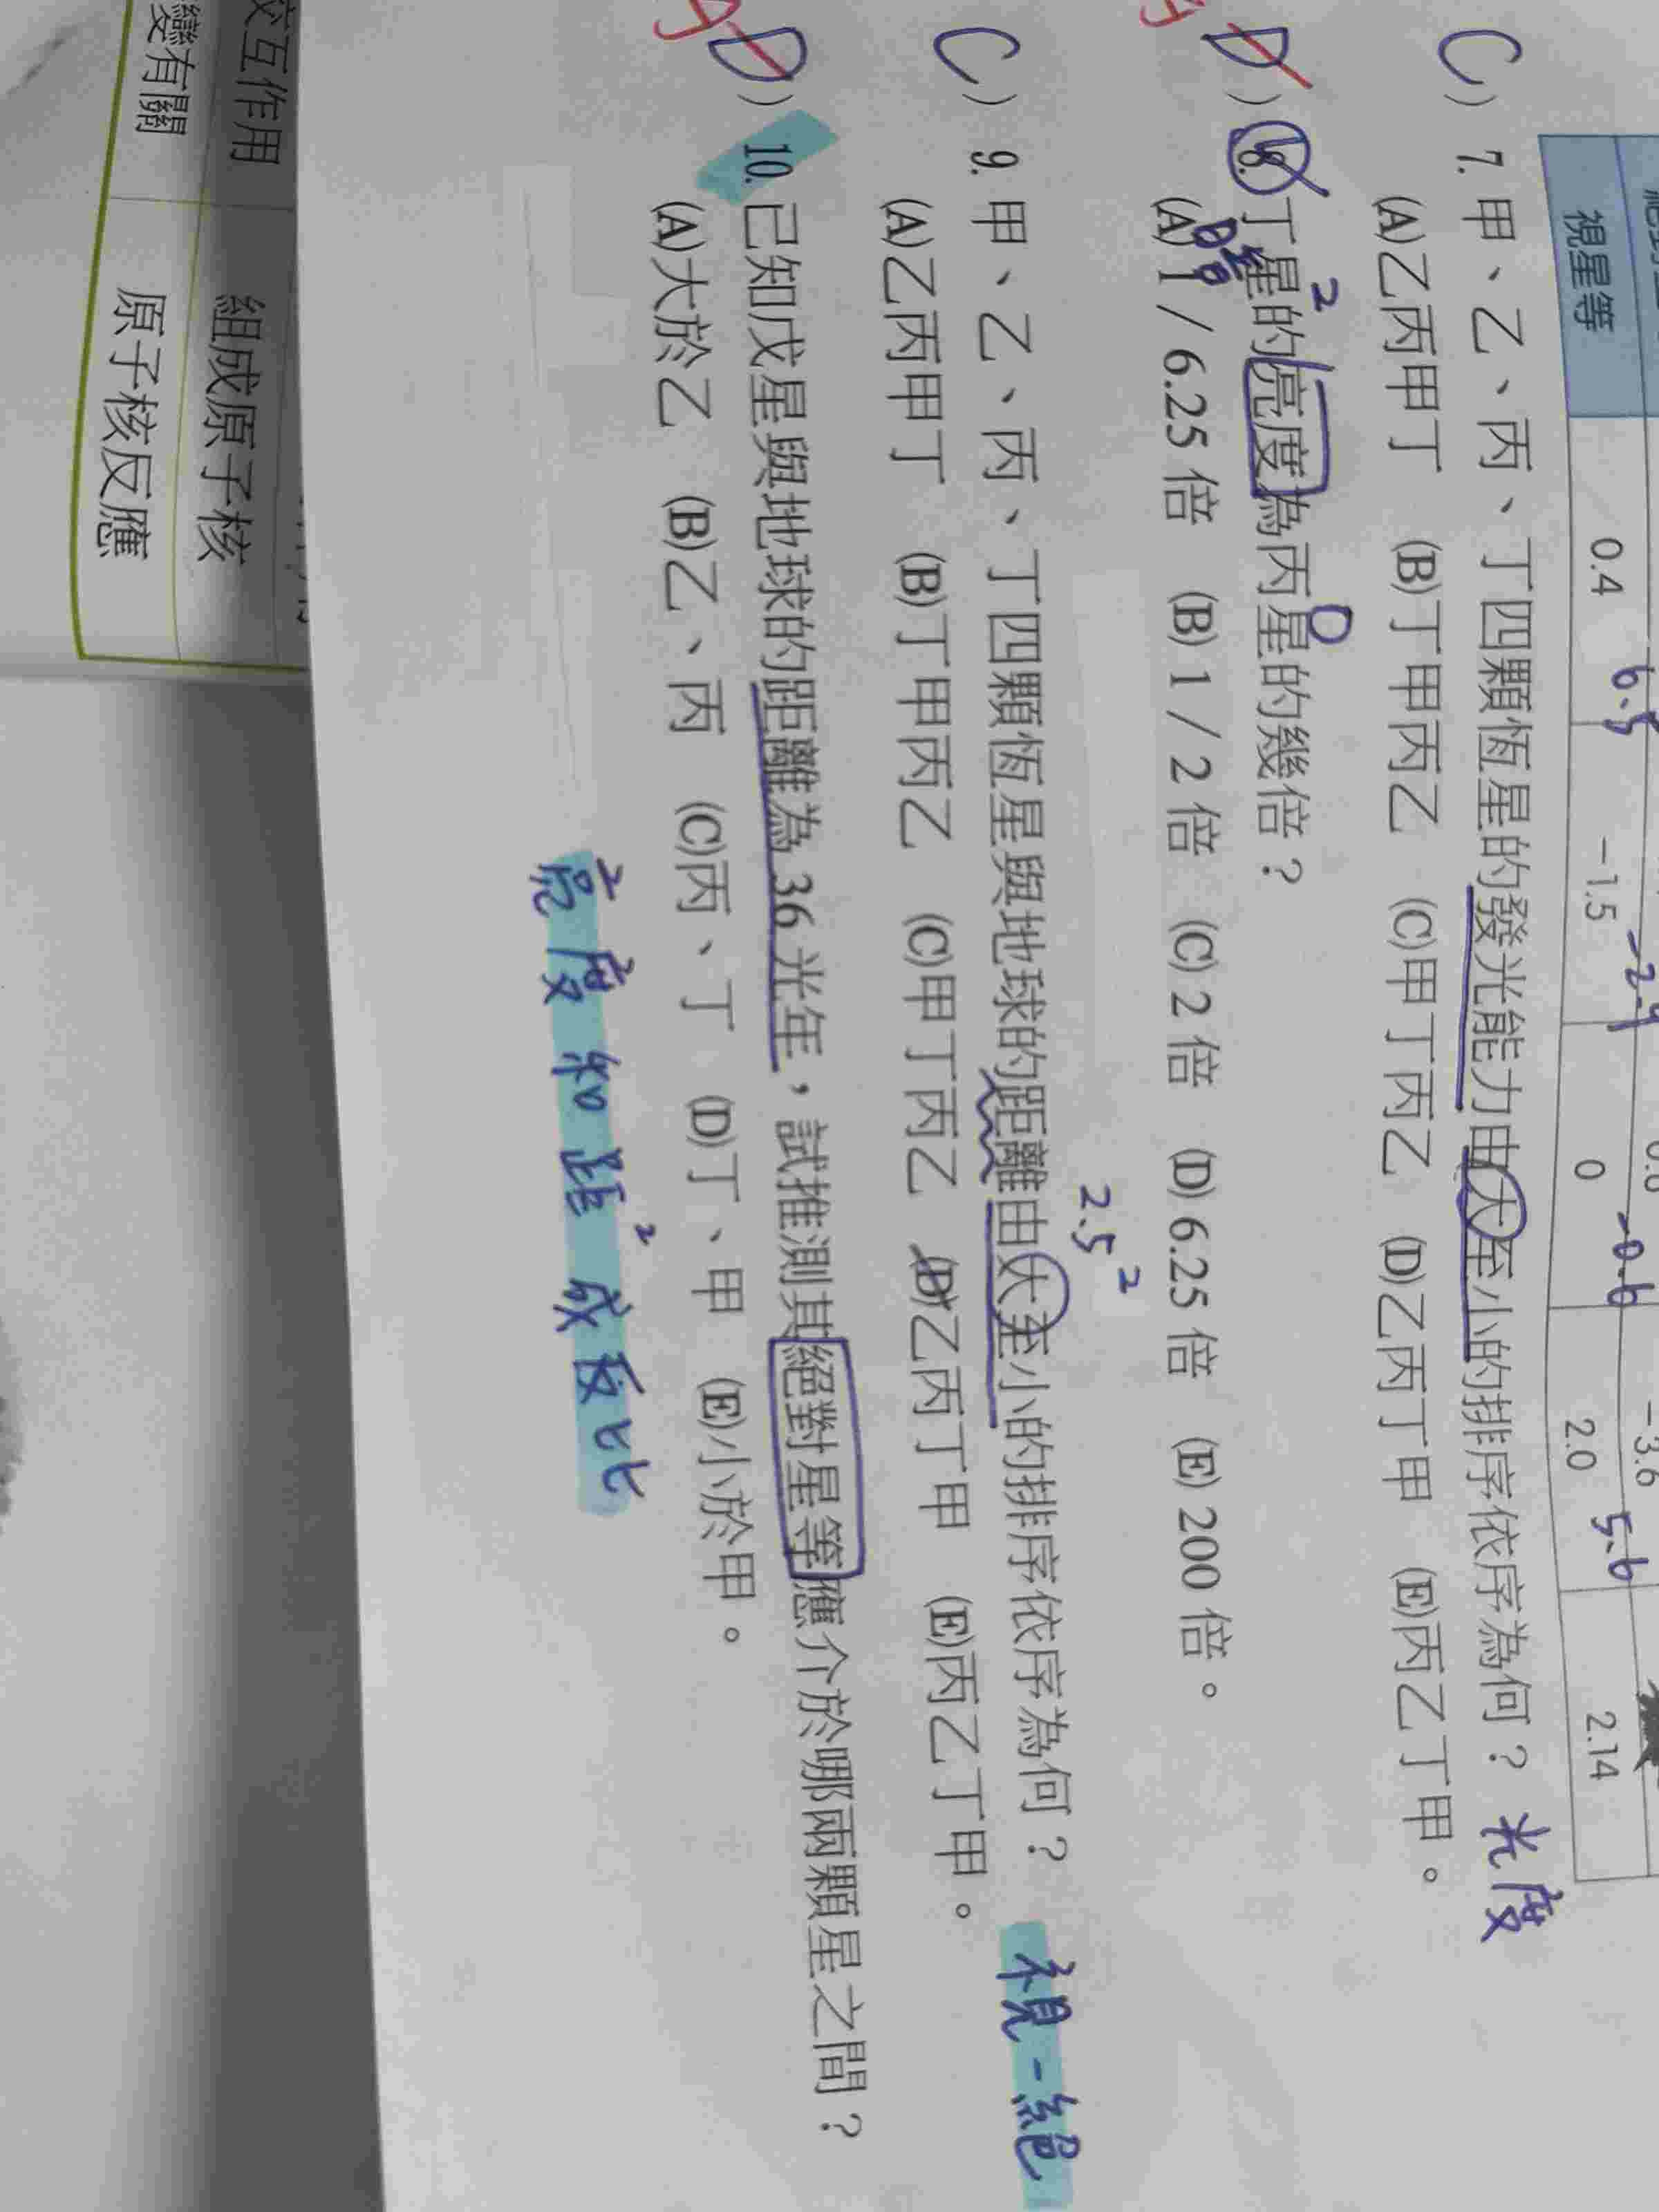 視星等 0.4 -1.5 0 2.0 2.14
6.5 -2.4 -0.6 5.6
-3.6
C) 7. 甲、乙、丙、丁四顆恆星的發光能力由大至小的排序依序為何? 光度
(A)乙丙甲丁 (B)丁甲丙乙 (C)甲丁丙乙 (D)乙丙丁甲 (E)丙乙丁甲。
2 0
D) 8. 丁星的亮度為丙星的幾倍?
(A) 1 / 6.25 倍 (B) 1 / 2 倍 (C) 2 倍 (D) 6.25 倍 (E) 200 倍。
A
2.5²
C) 9. 甲、乙、丙、丁四顆恆星與地球的距離由大至小的排序依序為何? 視-絕
(A)乙丙甲丁 (B)丁甲丙乙 (C)甲丁丙乙 (D)乙丙丁甲 (E)丙乙丁甲。
D) 10. 已知戊星與地球的距離為 36 光年,試推測其絕對星等應介於哪兩顆星之間?
(A)大於乙 (B)乙、丙 (C)丙、丁 (D)丁、甲 (E)小於甲。
A
亮度和距²成反比
交互作用 組成原子核
變有關 原子核反應